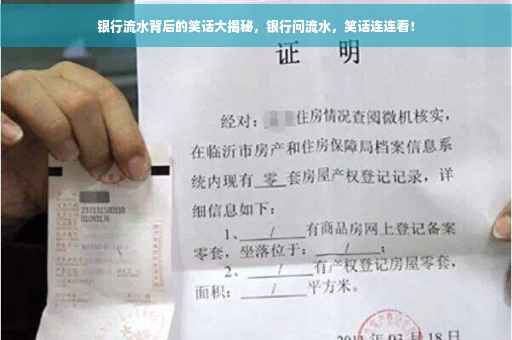 银行流水背后的笑话大揭秘，银行问流水，笑话连连看！
证 明
经对：住房情况查阅微机核实，
在临沂市房产和住房保障局档案信息系
统内现有 零 套房屋产权登记记录，详
细信息如下：
1、 / 有商品房网上登记备案
零套，坐落位于： / ；
2、 / 有产权登记房屋零套，
面积： / 平方米。
03月18日